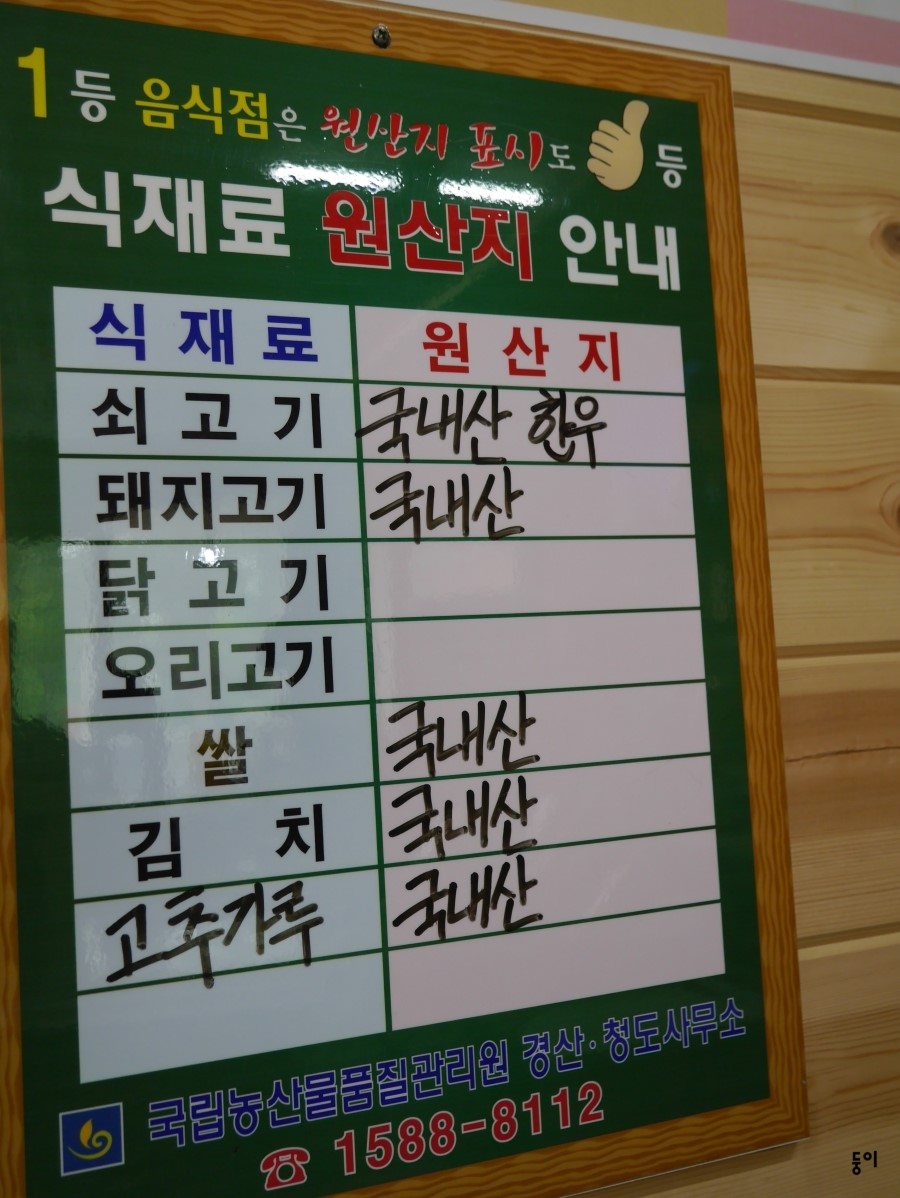 1등 음식점은 원산지 표시도 등
식재료 원산지 안내
식 재 료 원 산 지
쇠 고 기 국내산 한우
돼지고기 국내산
닭 고 기
오리고기
쌀 국내산
김 치 국내산
고추가루 국내산
국립농산물품질관리원 경산·청도사무소
☎ 1588-8112
둥이